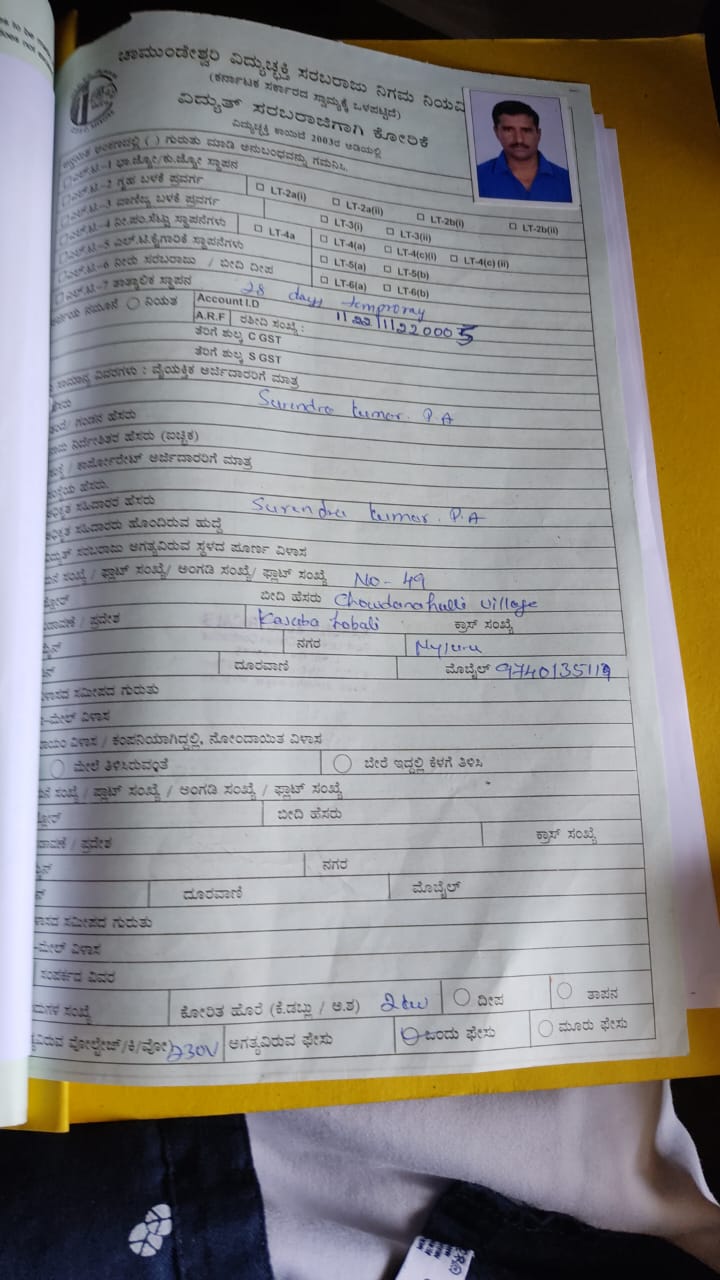 es to be
does not
ಚಾಮುಂಡೇಶ್ವರಿ ವಿದ್ಯುಚ್ಛಕ್ತಿ ಸರಬರಾಜು ನಿಗಮ ನಿಯಮಿ
(ಕರ್ನಾಟಕ ಸರ್ಕಾರದ ಸ್ವಾಮ್ಯಕ್ಕೆ ಒಳಪಟ್ಟಿದೆ)
ವಿದ್ಯುತ್ ಸರಬರಾಜಿಗಾಗಿ ಕೋರಿಕೆ
ವಿದ್ಯುಚ್ಛಕ್ತಿ ಕಾಯಿದೆ 2003ರ ಅಡಿಯಲ್ಲಿ
ಅಂಕಣದಲ್ಲಿ ( ) ಗುರುತು ಮಾಡಿ ಅನುಬಂಧವನ್ನು ಗಮನಿಸಿ.
ಎಲ್.ಟಿ-1 ಭಾ.ಜ್ಯೋ/ಕು.ಜ್ಯೋ ಸ್ಥಾಪನ
ಎಲ್.ಟಿ-2 ಗೃಹ ಬಳಕೆ ಪ್ರವರ್ಗ □ LT-2a(i) □ LT-2a(ii) □ LT-2b(i) □ LT-2b(ii)
ಎಲ್.ಟಿ-3 ವಾಣಿಜ್ಯ ಬಳಕೆ ಪ್ರವರ್ಗ □ LT-3(i) □ LT-3(ii)
ಎಲ್.ಟಿ-4 ನೀ.ಪಂ.ಸೆಟ್ಟು ಸ್ಥಾಪನೆಗಳು □ LT-4a □ LT-4(a) □ LT-4(c)(i) □ LT-4(c)(ii)
ಎಲ್.ಟಿ-5 ಎಲ್.ಟಿ.ಕೈಗಾರಿಕೆ ಸ್ಥಾಪನೆಗಳು □ LT-5(a) □ LT-5(b)
ಎಲ್.ಟಿ-6 ನೀರು ಸರಬರಾಜು / ಬೀದಿ ದೀಪ □ LT-6(a) □ LT-6(b)
ಎಲ್.ಟಿ-7 ತಾತ್ಕಾಲಿಕ ಸ್ಥಾಪನ 28 days temproray
ನಮೂನೆ ನಿಯತ Account I.D
A.R.F ರಶೀದಿ ಸಂಖ್ಯೆ : 112211220005
ತೆರಿಗೆ ಶುಲ್ಕ C GST
ತೆರಿಗೆ ಶುಲ್ಕ S GST
ಸಾಮಾನ್ಯ ವಿವರಗಳು : ವೈಯಕ್ತಿಕ ಅರ್ಜಿದಾರರಿಗೆ ಮಾತ್ರ
ಹೆಸರು Surendra kumar. P.A
ಗಂಡನ ಹೆಸರು
ನಿರ್ದೇಶಿತರ ಹೆಸರು (ಐಚ್ಛಿಕ)
/ ಕಾರ್ಪೋರೇಟ್ ಅರ್ಜಿದಾರರಿಗೆ ಮಾತ್ರ
ಸಂಸ್ಥೆಯ ಹೆಸರು.
ಸಹಿದಾರರ ಹೆಸರು Surendra kumar. P.A
ಸಹಿದಾರರು ಹೊಂದಿರುವ ಹುದ್ದೆ
ಸರಬರಾಜು ಅಗತ್ಯವಿರುವ ಸ್ಥಳದ ಪೂರ್ಣ ವಿಳಾಸ
ಸಂಖ್ಯೆ / ಪ್ಲಾಟ್ ಸಂಖ್ಯೆ/ ಅಂಗಡಿ ಸಂಖ್ಯೆ/ ಫ್ಲಾಟ್ ಸಂಖ್ಯೆ No - 49
ಬೀದಿ ಹೆಸರು Chowdanahalli village
/ ಪ್ರದೇಶ Kasaba hobali ಕ್ರಾಸ್ ಸಂಖ್ಯೆ
ನಗರ
ದೂರವಾಣಿ ಮೊಬೈಲ್ 9740135119
ಸಮೀಪದ ಗುರುತು
-ಮೇಲ್ ವಿಳಾಸ
ವಿಳಾಸ / ಕಂಪನಿಯಾಗಿದ್ದಲ್ಲಿ, ನೋಂದಾಯಿತ ವಿಳಾಸ
ಮೇಲೆ ತಿಳಿಸಿರುವಂತೆ ಬೇರೆ ಇದ್ದಲ್ಲಿ ಕೆಳಗೆ ತಿಳಿಸಿ
ಸಂಖ್ಯೆ / ಪ್ಲಾಟ್ ಸಂಖ್ಯೆ / ಅಂಗಡಿ ಸಂಖ್ಯೆ / ಫ್ಲಾಟ್ ಸಂಖ್ಯೆ
ಬೀದಿ ಹೆಸರು
/ ಪ್ರದೇಶ ಕ್ರಾಸ್ ಸಂಖ್ಯೆ
ನಗರ
ದೂರವಾಣಿ ಮೊಬೈಲ್
ಸಮೀಪದ ಗುರುತು
-ಮೇಲ್ ವಿಳಾಸ
ಸಂಪರ್ಕದ ವಿವರ
ಸಂಖ್ಯೆ ಕೋರಿತ ಹೊರೆ (ಕೆ.ಡಬ್ಲು / ಆ.ಶ) 2kw ದೀಪ ತಾಪನ
ವೋಲ್ಟೇಜ್/ಕಿ/ವೋ) 230V ಅಗತ್ಯವಿರುವ ಫೇಸು ಒಂದು ಫೇಸು ಮೂರು ಫೇಸು